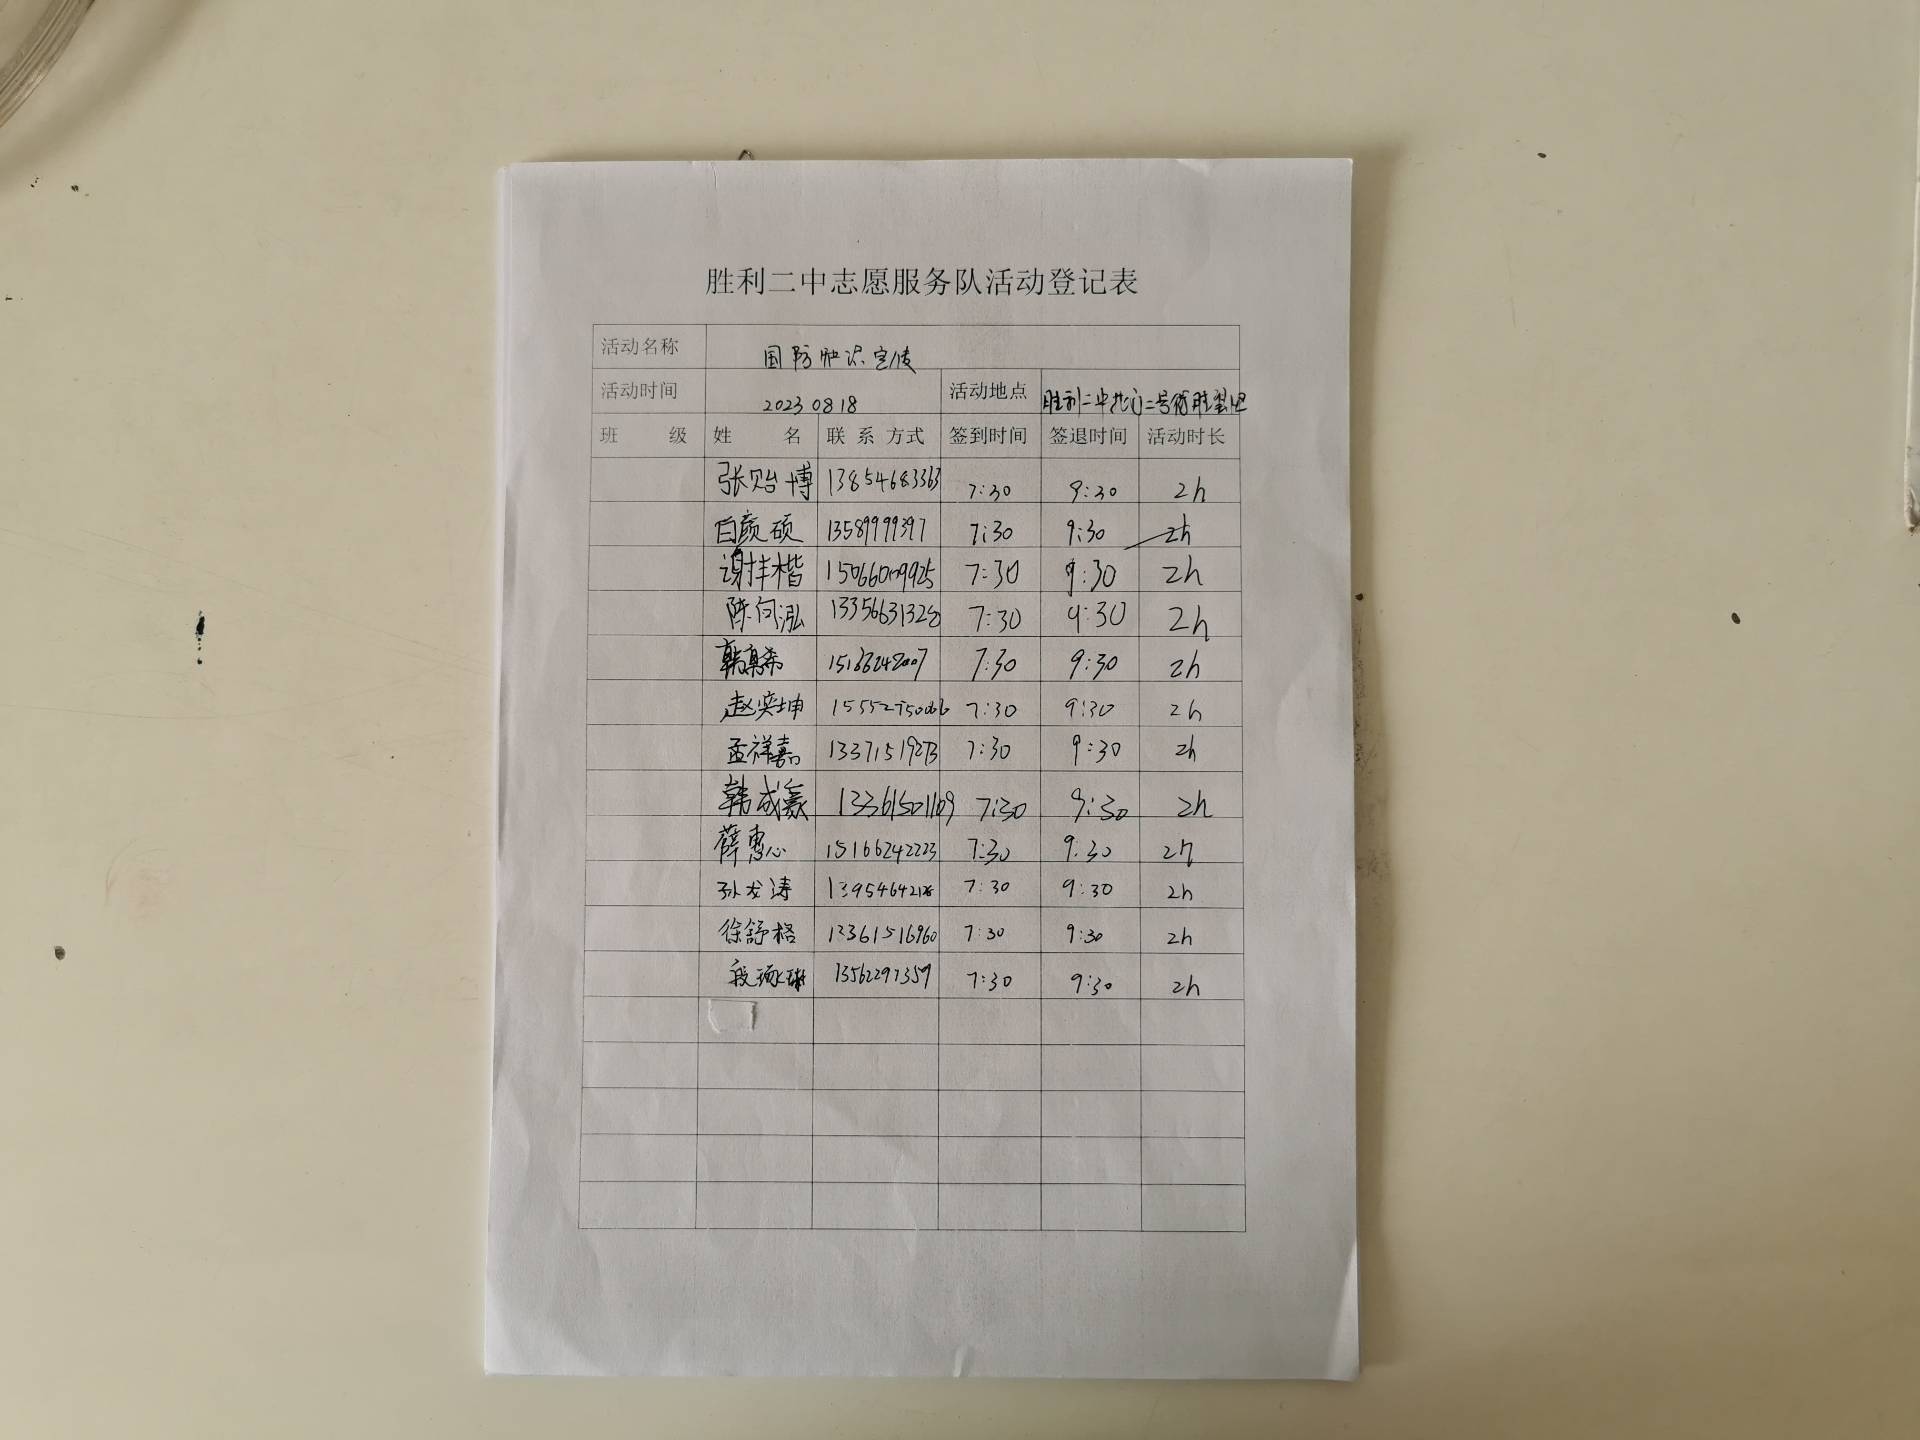 胜利二中志愿服务队活动登记表
活动名称 国防知识宣传
活动时间 20230818 活动地点 胜利二中北门二号
班 级 姓 名 联系方式 签到时间 签退时间 活动时长
张贻博 13854683363 7:30 9:30 2h
白颜硕 13589999397 7:30 9:30 2h
谢丰楷 15066009925 7:30 9:30 2h
陈何泓 13356631328 7:30 9:30 2h
7:30 9:30 2h
赵奕坤 15552750066 7:30 9:30 2h
孟祥嘉 13371519273 7:30 9:30 2h
韩成豪 13361501109 7:30 9:30 2h
薛惠心 15166242223 7:30 9:30 2h
孙龙涛 7:30 9:30 2h
徐舒格 13361516960 7:30 9:30 2h
段琢琳 13562297359 7:30 9:30 2h